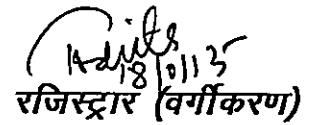 18/01/15
रजिस्ट्रार (वर्गीकरण)